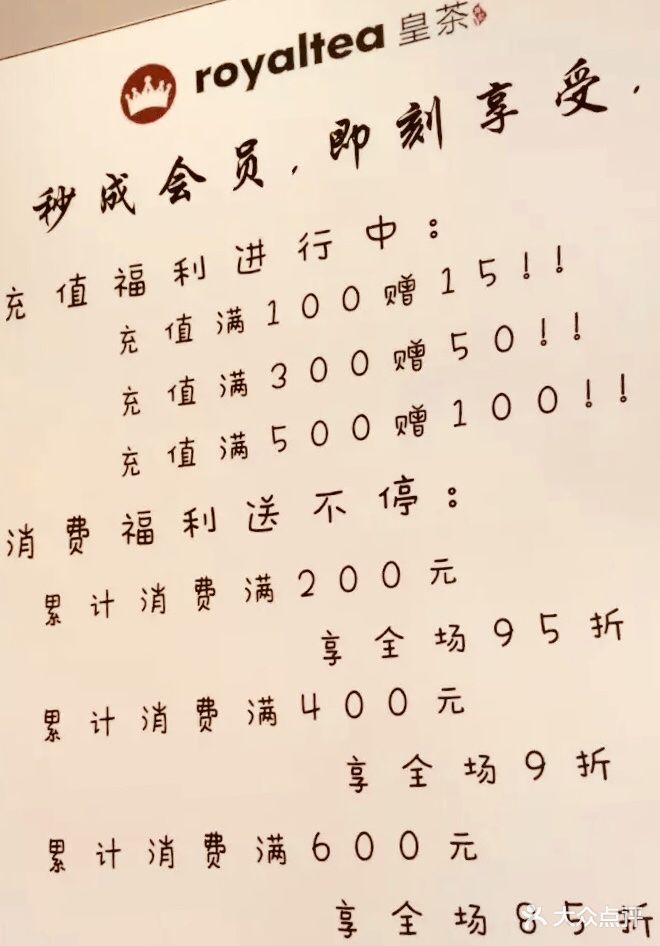 royaltea 皇茶
秒成会员,即刻享受,
充值福利进行中:
充值满100赠15!!
充值满300赠50!!
充值满500赠100!!
消费福利送不停:
累计消费满200元
享全场95折
累计消费满400元
享全场9折
累计消费满600元
享全场85折
大众点评